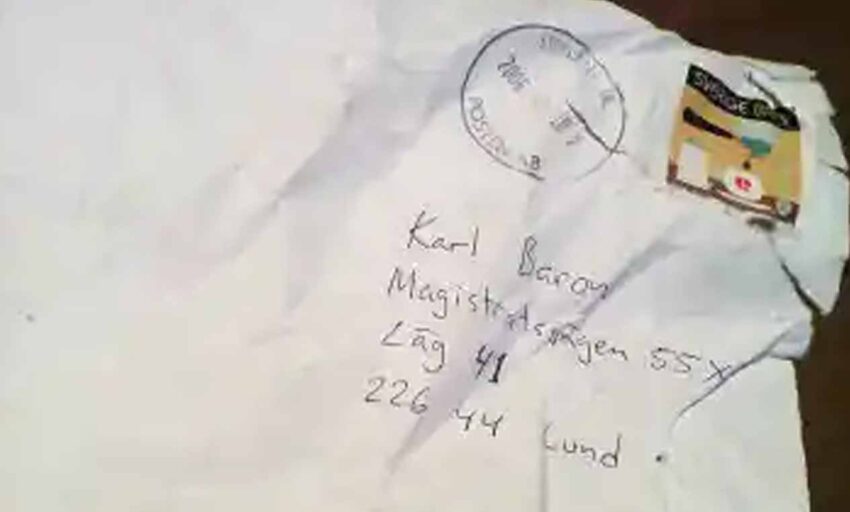 2005
POSTEN AB
SVERIGE
Karl Baron
Magistratsvägen 55 X
Läg 41
226 44 Lund